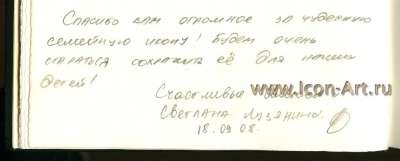 Спасибо вам огромное за чудесную
семейную икону! Будем очень
стараться сохранить её для наших
детей!
www.Icon-Art.ru
Счастливые
Светлана
18.09.08.